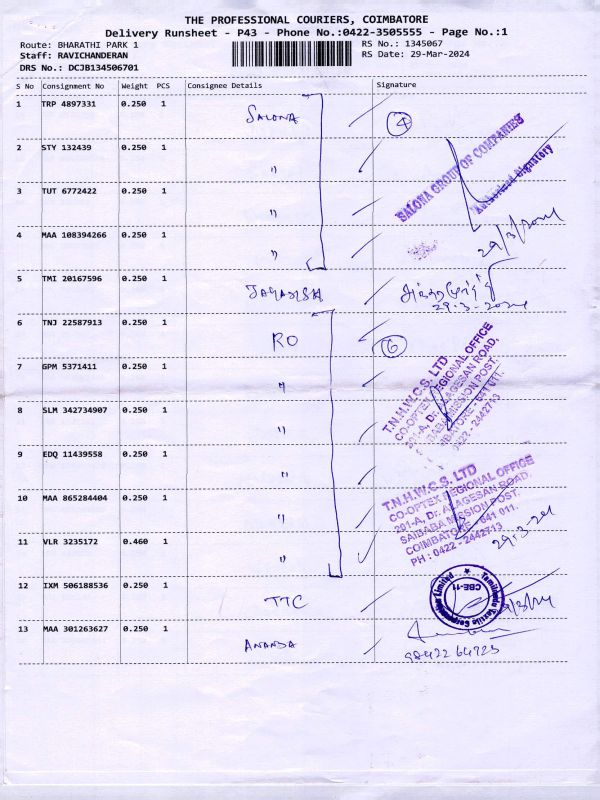 THE PROFESSIONAL COURIERS, COIMBATORE
Delivery Runsheet - P43 - Phone No.:0422-3505555 - Page No.:1
Route: BHARATHI PARK 1 RS No.: 1345067
Staff: RAVICHANDERAN RS Date: 29-Mar-2024
DRS No.: DCJB134506701
S No Consignment No Weight PCS Consignee Details Signature
1 TRP 4897331 0.250 1 SALONA 4
2 STY 132439 0.250 1 "
SALONA GROUP OF COMPANIES
Authorised Signatory
3 TUT 6772422 0.250 1 "
4 MAA 108394266 0.250 1 " 29/3/2024
5 TMI 20167596 0.250 1 JAGADISH
29-3-2024
6 TNJ 22587913 0.250 1 RO 6
7 GPM 5371411 0.250 1 "
T.N.H.W.C.S. LTD
CO-OPTEX REGIONAL OFFICE
201-A, Dr. ALAGESAN ROAD,
SAIBABA MISSION POST.
COIMBATORE - 641 011.
0422 - 2442713
8 SLM 342734907 0.250 1 "
9 EDQ 11439558 0.250 1 "
10 MAA 865284404 0.250 1 "
T.N.H.W.C.S. LTD
CO-OPTEX REGIONAL OFFICE
201-A, Dr. ALAGESAN ROAD,
SAIBABA MISSION POST.
COIMBATORE - 641 011.
PH : 0422 - 2442713
11 VLR 3235172 0.460 1 " 29-3-24
12 IXM 506188536 0.250 1 TTC
Tamilnadu Textile Corporation Limited
CBE-11
13 MAA 301263627 0.250 1 ANANDA